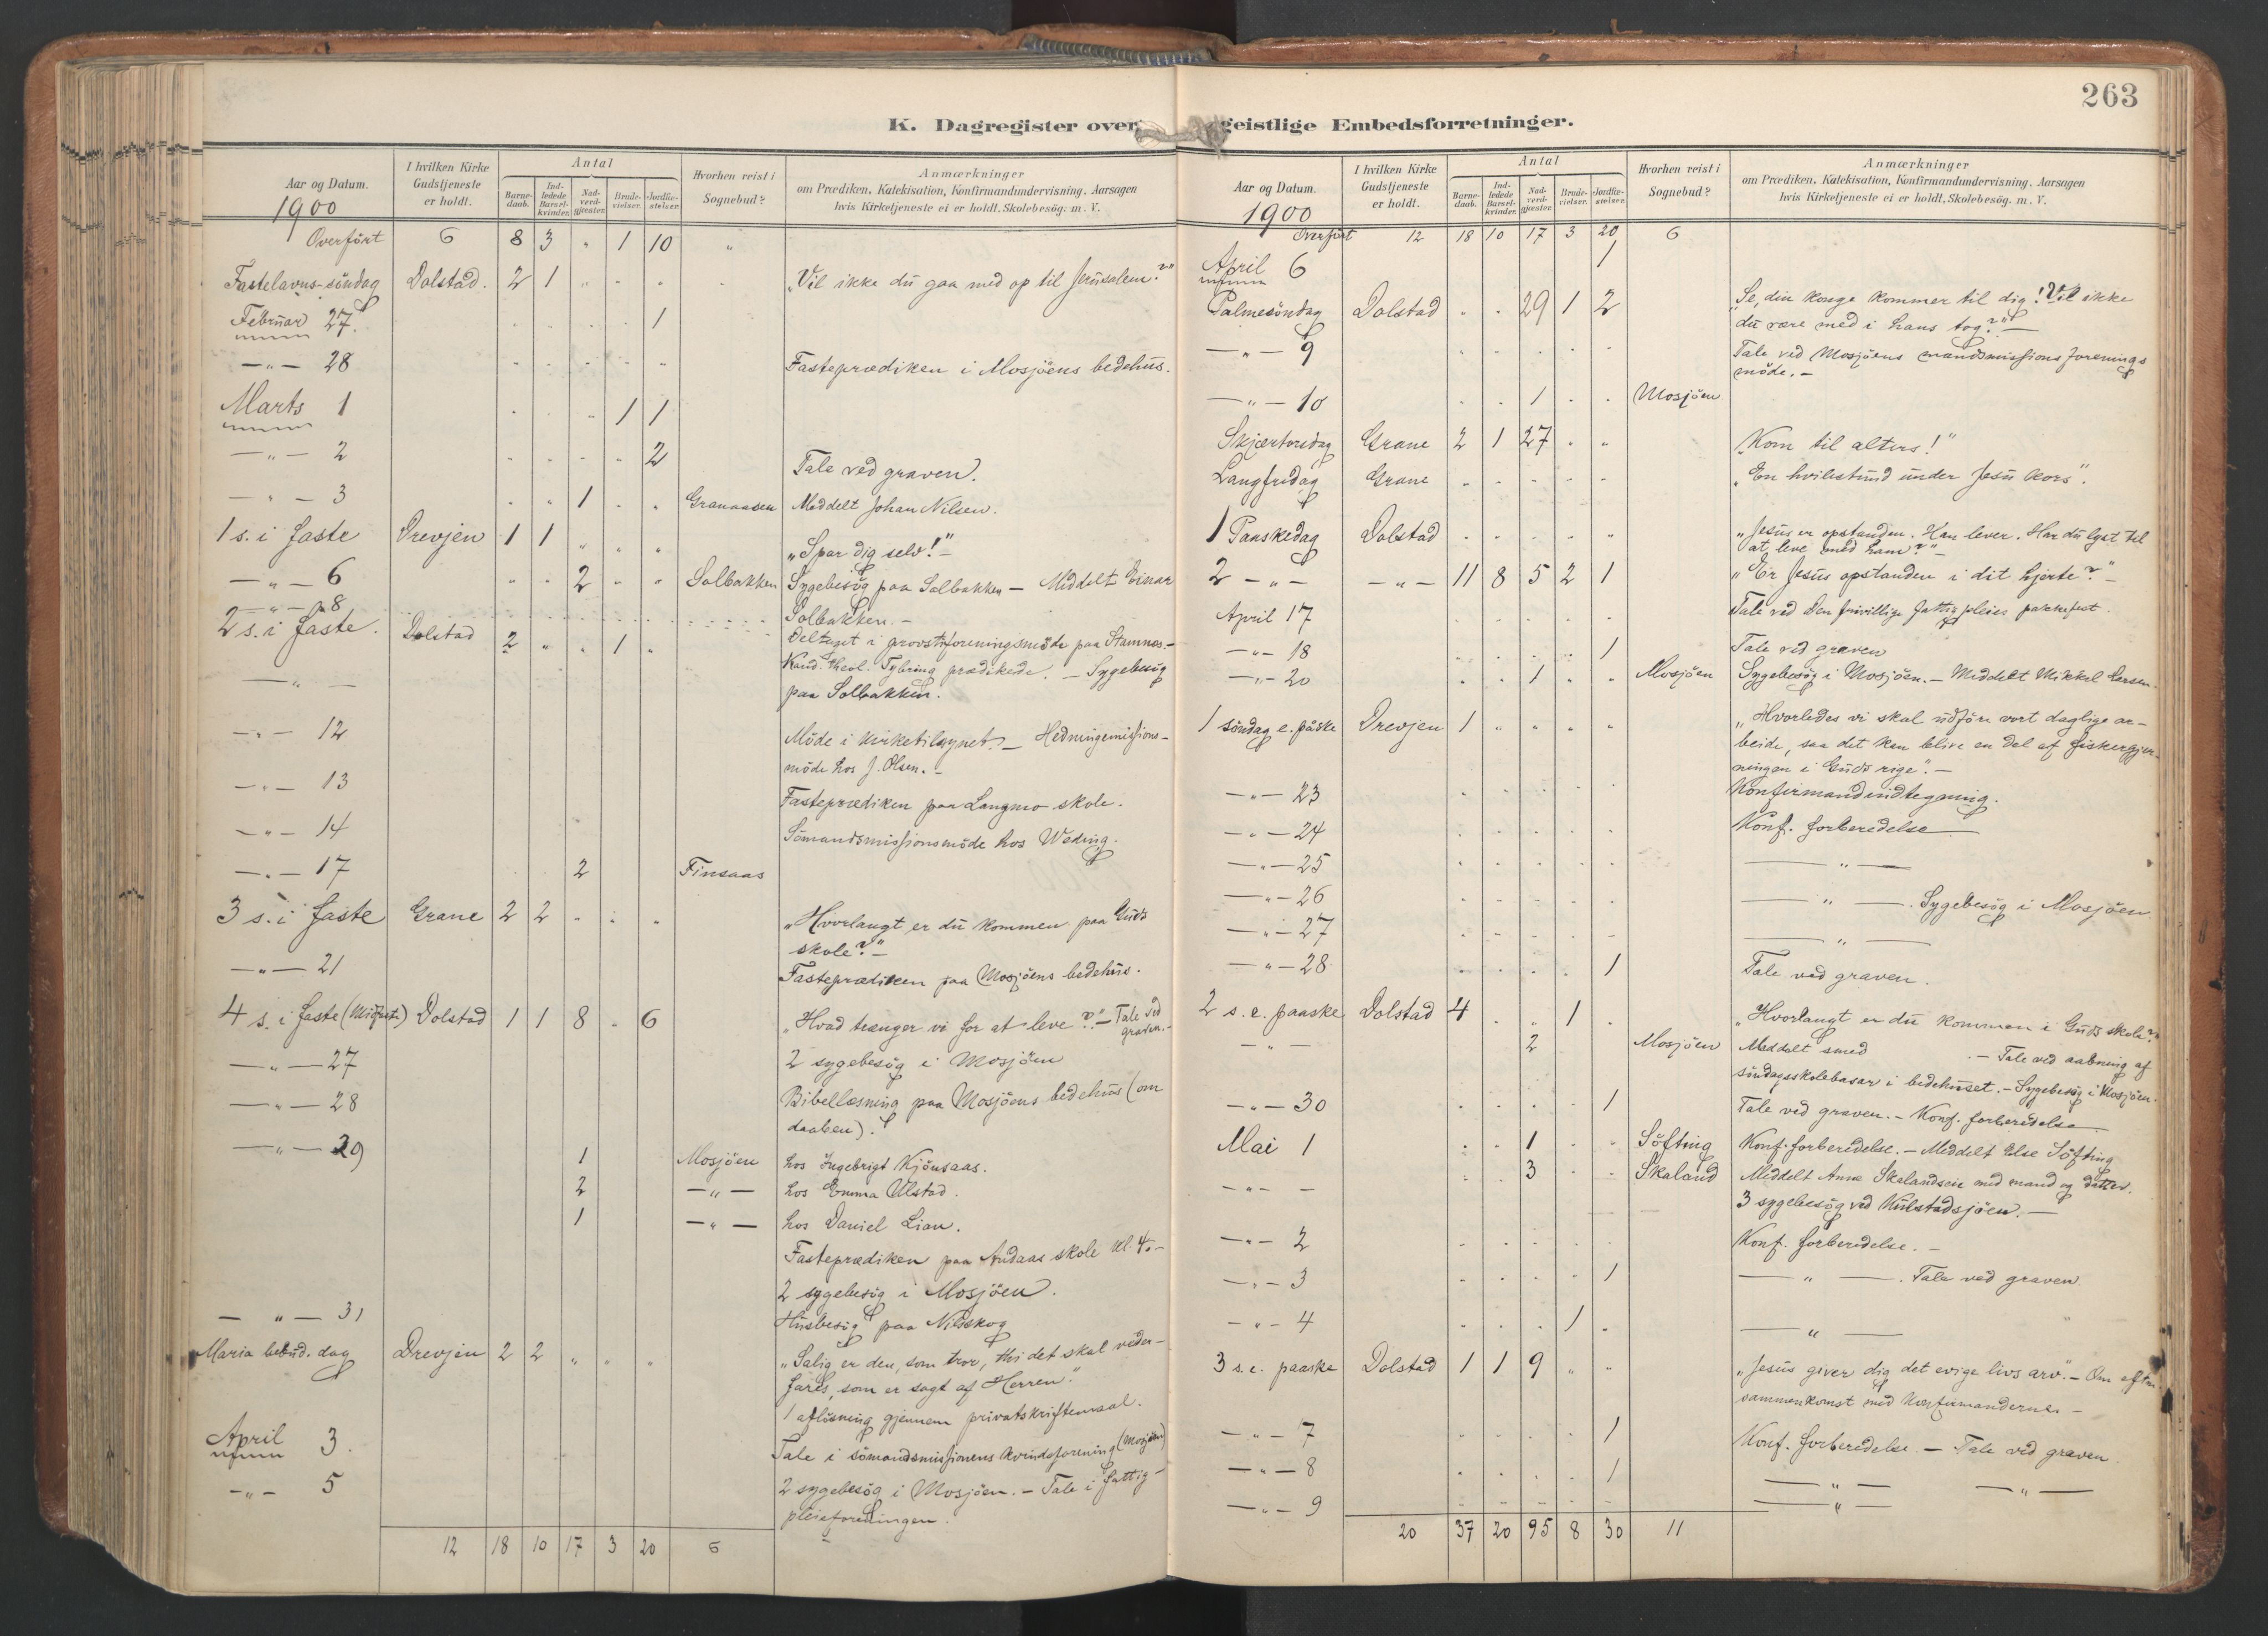 263
K. Dagregister over geistlige Embedsforretninger.
Aar og Datum. | I hvilken Kirke Gudstjeneste er holdt. | Antal | Barnedaab. | Indledede Barselkvinder. | Nadverdgjester. | Brudevielser. | Jordfæstelser. | Hvorhen reist i Sognebud? | Anmærkninger om Prædiken, Katekisation, Konfirmandundervisning, Aarsagen hvis Kirketjeneste ei er holdt, Skolebesög. m. V.
1900
Overfört 6 8 3 „ 1 10 „
Fastelavns-söndag Dolstad. 2 1 „Vil ikke du gaa med op til Jerusalem?"
Februar 27. 1
—„— 28 Fasteprædiken i Mosjöens bedehus.
Marts 1 1 1
—„— 2 2 Tale ved graven.
—„— 3 1 Granaasen Meddelt Johan Nilsen.
1 s. i faste Drevjen 1 1 „ „ „ „Spar dig selv!"—
—„— 6 2 Solbakken Sygebesög paa Solbakken — Meddelt Einar
—„— 8 Solbakken. —
2 s. i faste. Dolstad 2 „ „ 1 „ Deltaget i provstiforeningsmöde paa Stamnes.—
Kand. theol. Tybring prædikede. — Sygebesög
—„— paa Solbakken.
—„— 12 Möde i kirketilsynet. — Hedningemissions-
möde hos J. Olsen. —
—„— 13 Fasteprædiken paa Langmo skole.
—„— 14 Sömandsmissionsmöde hos Weding.
—„— 17 2 Finsaas
3 s. i faste Grane 2 2 „ „ „ „Hvorlangt er du kommen paa Guds
skole?"—
—„— 21 Fasteprædiken paa Mosjöens bedehus.
4 s. i faste (Midfaste) Dolstad 1 1 8 „ 6 „Hvad trænger vi for at leve?"— Tale ved
graven.—
—„— 27 2 sygebesög i Mosjöen
—„— 28 Bibellæsning paa Mosjöens bedehus (om
daaben).
—„— 29 1 Mosjöen hos Ingebrigt Kjönsaas.
2 —„— hos Emma Ulstad.
1 —„— hos Daniel Lian.
Fasteprædiken paa Andaas skole kl. 4.—
2 sygebesög i Mosjöen.
—„— 31 Husbesög paa Nilsskog
Maria bebud. dag Drevjen 2 2 „ „ „ „Salig er den, som tror, thi det skal veder-
fares, som er sagt af Herren."
1 aflösning gjennem privatskriftemaal.
April 3. Tale i sömandsmissionens kvindeforening (Mosjöen)
—„— 5 2 sygebesög i Mosjöen. — Tale i fattig-
pleieforeningen.
12 18 10 17 3 20 6
Aar og Datum. | I hvilken Kirke Gudstjeneste er holdt. | Antal | Barnedaab. | Indledede Barselkvinder. | Nadverdgjester. | Brudevielser. | Jordfæstelser. | Hvorhen reist i Sognebud? | Anmærkninger om Prædiken, Katekisation, Konfirmandundervisning, Aarsagen hvis Kirketjeneste ei er holdt, Skolebesög. m. V.
1900
Overfört 12 18 10 17 3 20 6
April 6 1
Palmesöndag Dolstad 29 1 2 „Se, din konge kommer til dig! Vil ikke
du være med i hans tog?"—
—„— 9 Tale ved Mosjöens mandsmissionsforenings
möde. —
—„— 10 1 Mosjöen
Skjærtorsdag Grane 2 1 27 „ „ „Kom til alters!"
Langfredag Grane „En hvilestund under Jesu kors".
1 Paaskedag Dolstad „Jesus er opstanden. Han lever. Har du lyst til
at leve med ham?"—
2 —„— —„— 11 8 5 2 1 „Er Jesus opstanden i dit hjerte?"—
April 17 Tale ved Den frivillige fattigpleies paaskefest.
—„— 18 1 Tale ved graven
—„— 20 1 Mosjöen Sygebesög i Mosjöen. — Meddelt Mikkel Larsen.
1 söndag e. påske Drevjen 1 „ „ „ „ „Hvorledes vi skal udföre vort daglige ar-
beide, saa det kan blive en del af fiskergjer-
ningen i Guds rige". —
—„— 23 Konfirmandindtegning.
—„— 24 Konf. forberedelse
—„— 25 —„—
—„— 26 —„—. Sygebesög i Mosjöen
—„— 27 —„—
—„— 28 1 Tale ved graven.
2 s. e. paaske Dolstad 4 1 „Hvorlangt er du kommen i Guds skole?"
—„— 2 Mosjöen Meddelt smed . — Tale ved aabning af
söndagsskolebasar i bedehuset. — Sygebesög i Mosjöen.
—„— 30 1 Tale ved graven. — Konf. forberedelse
Mai 1 1 Söfting Konf. forberedelse. — Meddelt Else Söfting
—„— 3 Skaland Meddelt Anna Skalandseie med mand og datter.
3 sygebesög ved Kulstadsjöen. —
—„— 2 Konf. forberedelse. —
—„— 3 1 —„—. Tale ved graven.
—„— 4 1 —„—
3 s. e. paaske Dolstad 1 1 9 „ „ „Jesus giver dig det evige livs arv". — Om eftm.
sammenkomst med konfirmanderne. —
—„— 7 1 Konf. forberedelse. — Tale ved graven.
—„— 8 1 —„— —„—
—„— 9 —„—
20 37 20 95 8 30 11